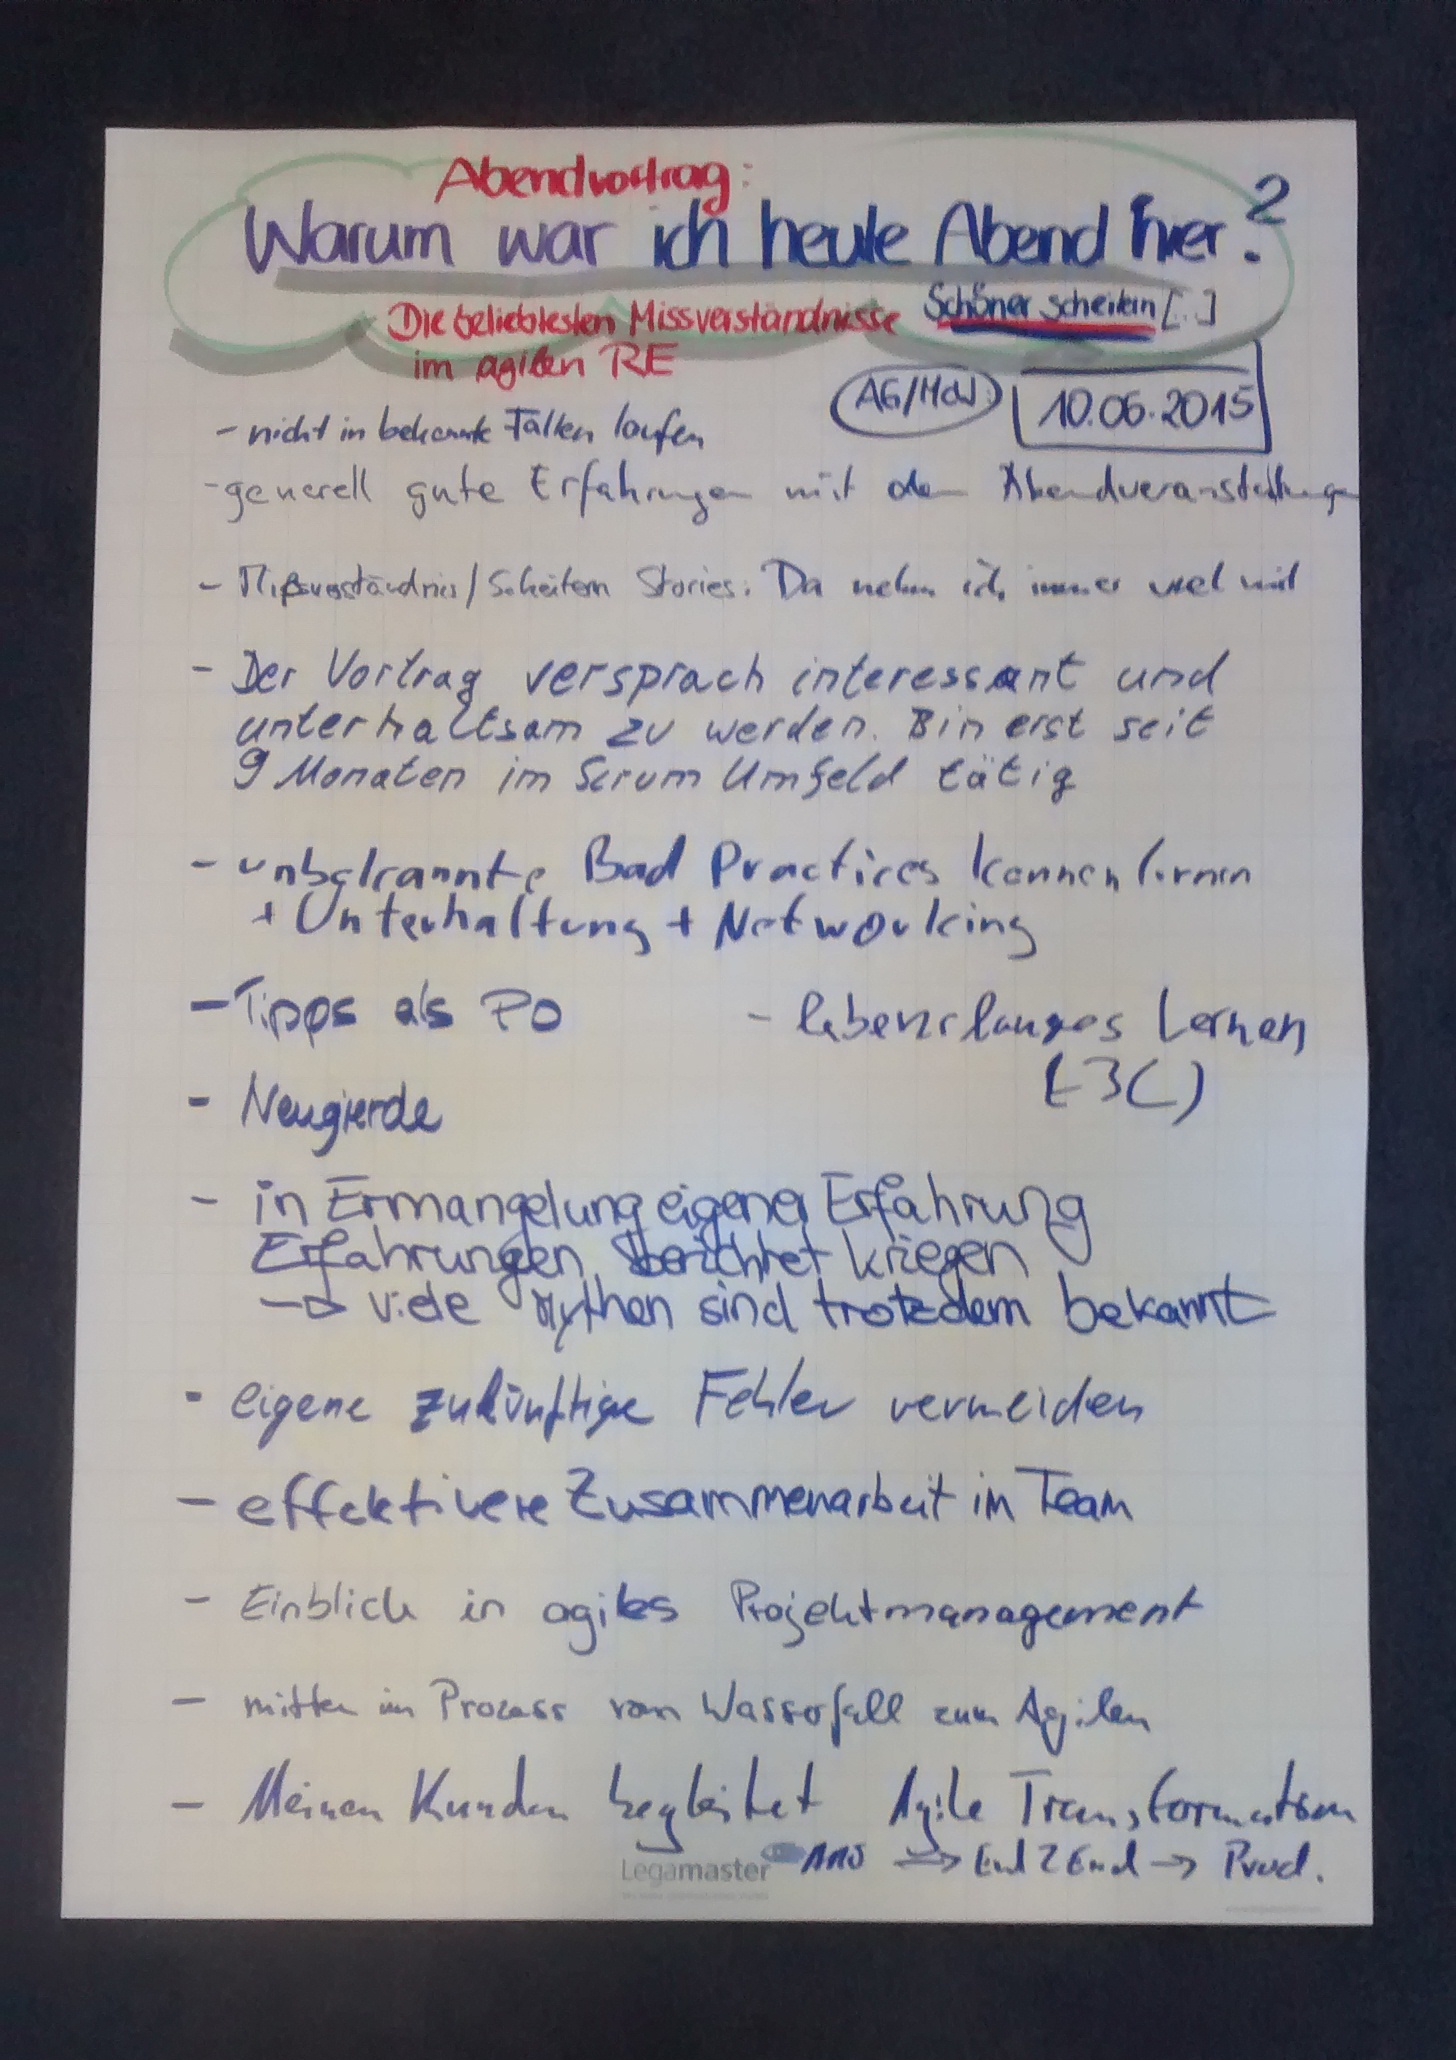 Abendvortrag:
Warum war ich heute Abend hier?
Die beliebtesten Missverständnisse
im agilen RE
Schöner scheitern [...]
10.06.2015
- nicht in bekannte Fallen laufen
- generell gute Erfahrungen mit den Abendveranstaltungen
- Mißverständnis/Scheitern Stories: Da nehm ich immer viel mit
- Der Vortrag versprach interessant und
unterhaltsam zu werden. Bin erst seit
9 Monaten im Scrum Umfeld tätig
- unbekannte Bad Practices kennen lernen
+ Unterhaltung + Networking
- Tipps als PO
- lebenslanges Lernen
- Neugierde
- in Ermangelung eigener Erfahrung
Erfahrungen berichtet kriegen
→ viele Mythen sind trotzdem bekannt
- eigene zukünftige Fehler vermeiden
- effektivere Zusammenarbeit im Team
- Einblick in agiles Projektmanagement
- mitten im Prozess vom Wasserfall zum Agilen
- Meinen Kunden begleitet Agile Transformation
⇒ End 2 End → Prod.
Legamaster